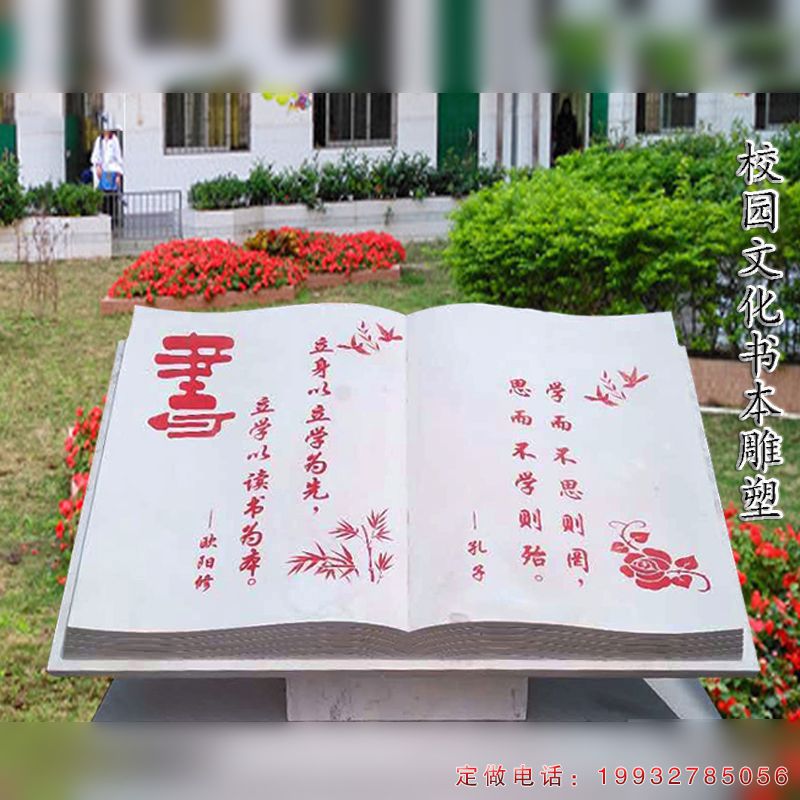 校园文化书本雕塑
書
立身以立学为先，
立学以读书为本。
—欧阳修
学而不思则罔，
思而不学则殆。
—孔子
定做电话：19932785056